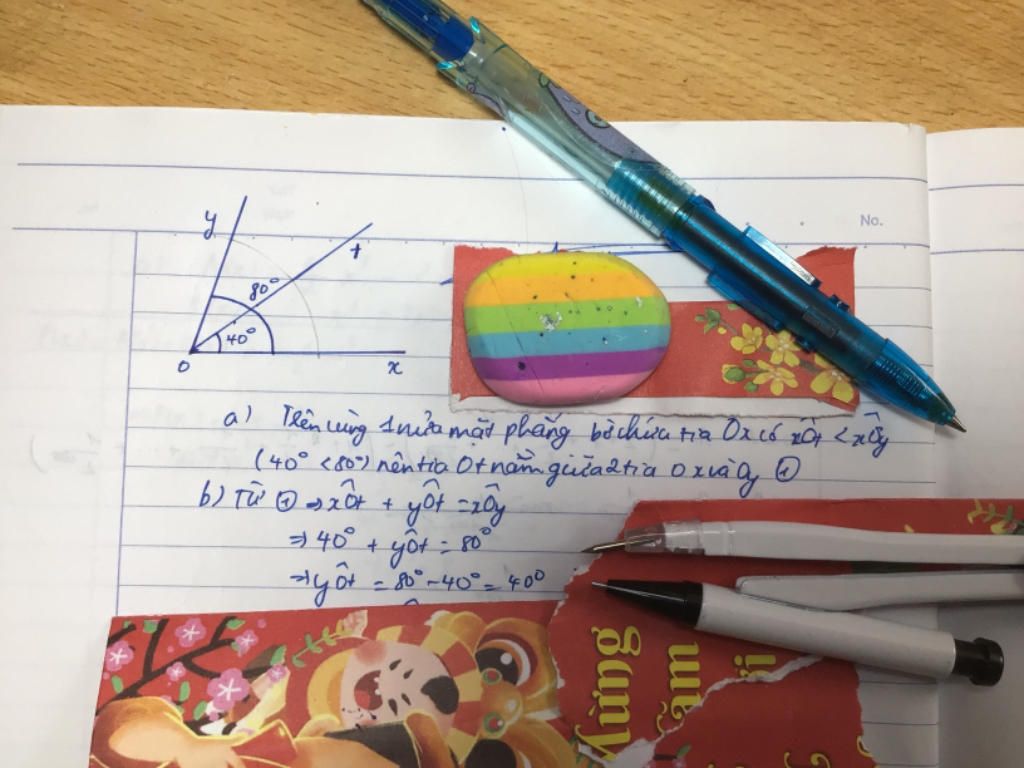 No.
y
t
80°
40°
O
x
a) Trên cùng 1 nửa mặt phẳng bờ chứa tia Ox có xÔt < xÔy
(40° < 80°) nên tia Ot nằm giữa 2 tia Ox và Oy ①
b) Từ ① ⇒ xÔt + yÔt = xÔy
⇒ 40° + yÔt = 80°
⇒ yÔt = 80° - 40° = 40°
Mừng
Năm